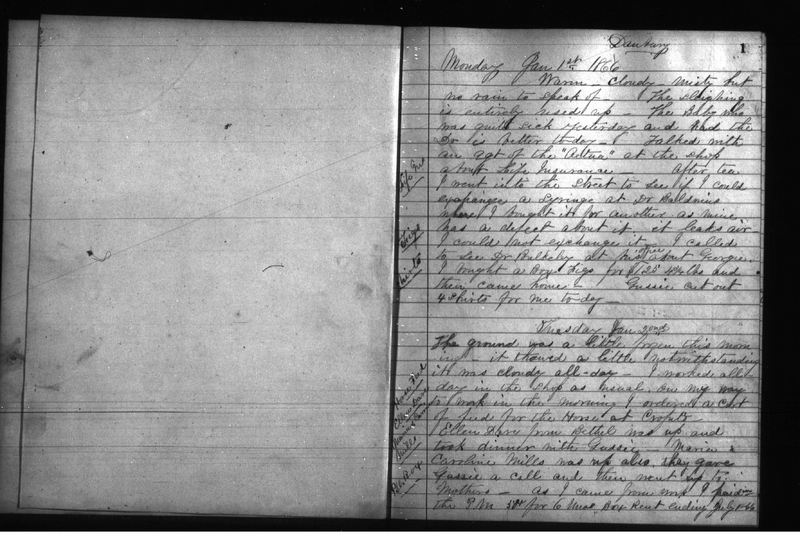 Danbury
1
Monday Jan 1st 1866
Warm - Cloudy - Misty but
no rain to speak of The Sleighing
is entirely used up - The Baby who
was quite sick yesterday and had the
Dr is better to-day - I Talked with
an agt of the "Aetna" at the shop
about Life Insurance - After tea
I went into the Street to see if I could
exchange a Syringe at Dr Baldwins
where I bought it for another as mine
has a defect about it, it leaks air
I could not exchange it - I called
to see Dr Bulkeley at his office about Georgie.
I bought a Box Figs for 4 lbs and
then came home - Gussie cut out
4 Shirts for me to-day -
Life Ins
Figs
Shirts
Tuesday Jan 2nd
The ground was a little frozen this morn
ing - it thawed a little notwithstanding
it was cloudy all-day - I worked all
day in the shop as usual, on my way
to work in the morning I ordered a Cwt
of feed for the Horse at Crofts
Ellen from Bethel was up and
took dinner with Gussie - Maria &
Caroline Mills was up also they gave
Gussie a call and then went up to
Mothers - as I came from work I paid
the P.M. for 6 Mos. Box Rent ending July 1-66
Horse Feed
Ellen
Mills